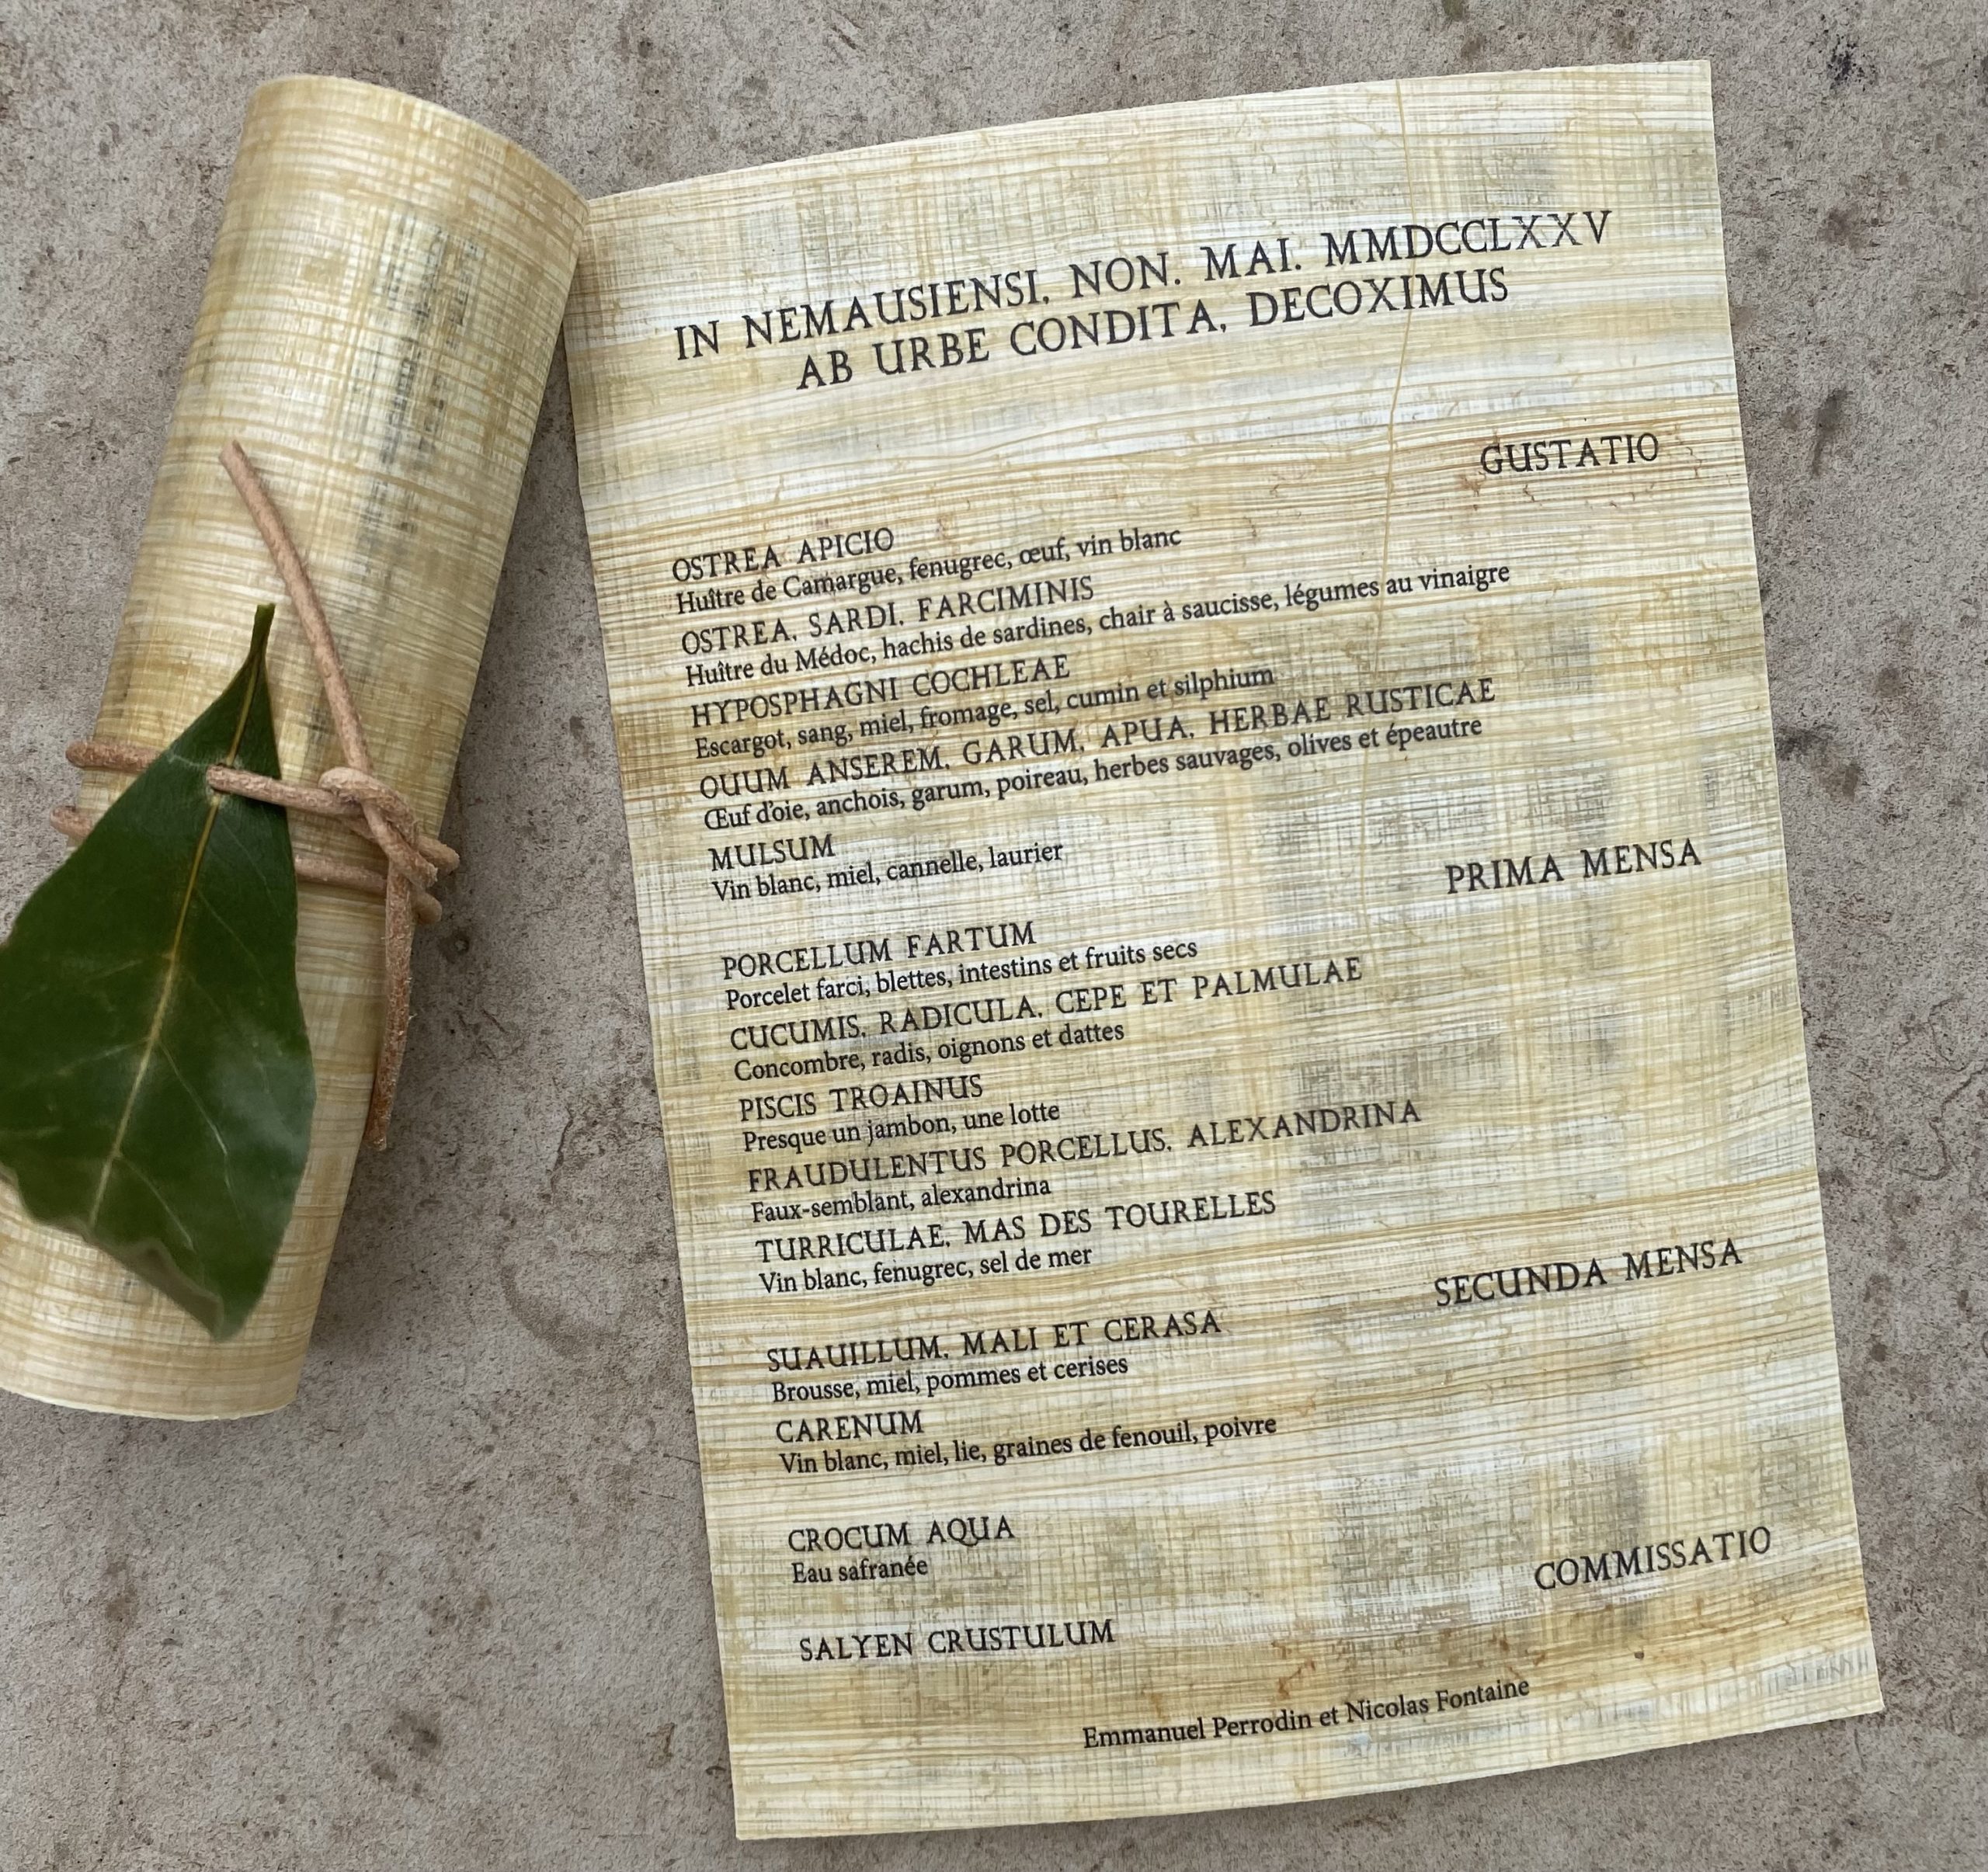 IN NEMAUSIENSI, NON. MAI. MMDCCLXXV
AB URBE CONDITA, DECOXIMUS
GUSTATIO
OSTREA APICIO
Huître de Camargue, fenugrec, œuf, vin blanc
OSTREA, SARDI, FARCIMINIS
Huître du Médoc, hachis de sardines, chair à saucisse, légumes au vinaigre
HYPOSPHAGNI COCHLEAE
Escargot, sang, miel, fromage, sel, cumin et silphium
OUUM ANSEREM, GARUM, APUA, HERBAE RUSTICAE
Œuf d'oie, anchois, garum, poireau, herbes sauvages, olives et épeautre
MULSUM
Vin blanc, miel, cannelle, laurier
PRIMA MENSA
PORCELLUM FARTUM
Porcelet farci, blettes, intestins et fruits secs
CUCUMIS, RADICULA, CEPE ET PALMULAE
Concombre, radis, oignons et dattes
PISCIS TROAINUS
Presque un jambon, une lotte
FRAUDULENTUS PORCELLUS, ALEXANDRINA
Faux-semblant, alexandrina
TURRICULAE, MAS DES TOURELLES
Vin blanc, fenugrec, sel de mer
SECUNDA MENSA
SUAUILLUM, MALI ET CERASA
Brousse, miel, pommes et cerises
CARENUM
Vin blanc, miel, lie, graines de fenouil, poivre
CROCUM AQUA
Eau safranée
COMMISSATIO
SALYEN CRUSTULUM
Emmanuel Perrodin et Nicolas Fontaine